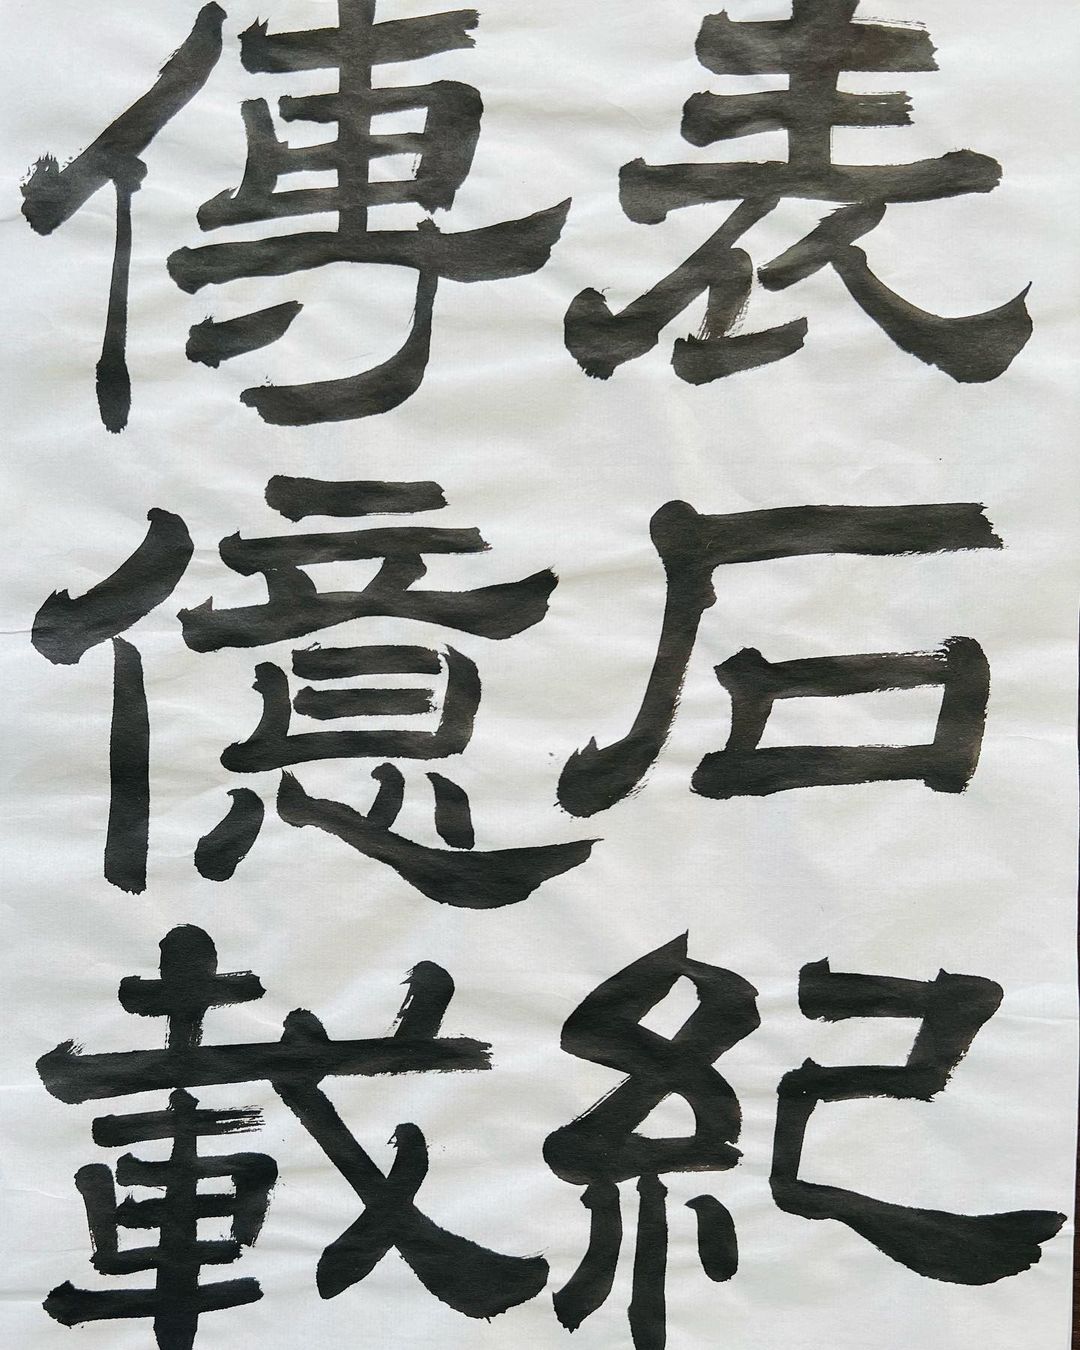 表石紀
傳億載